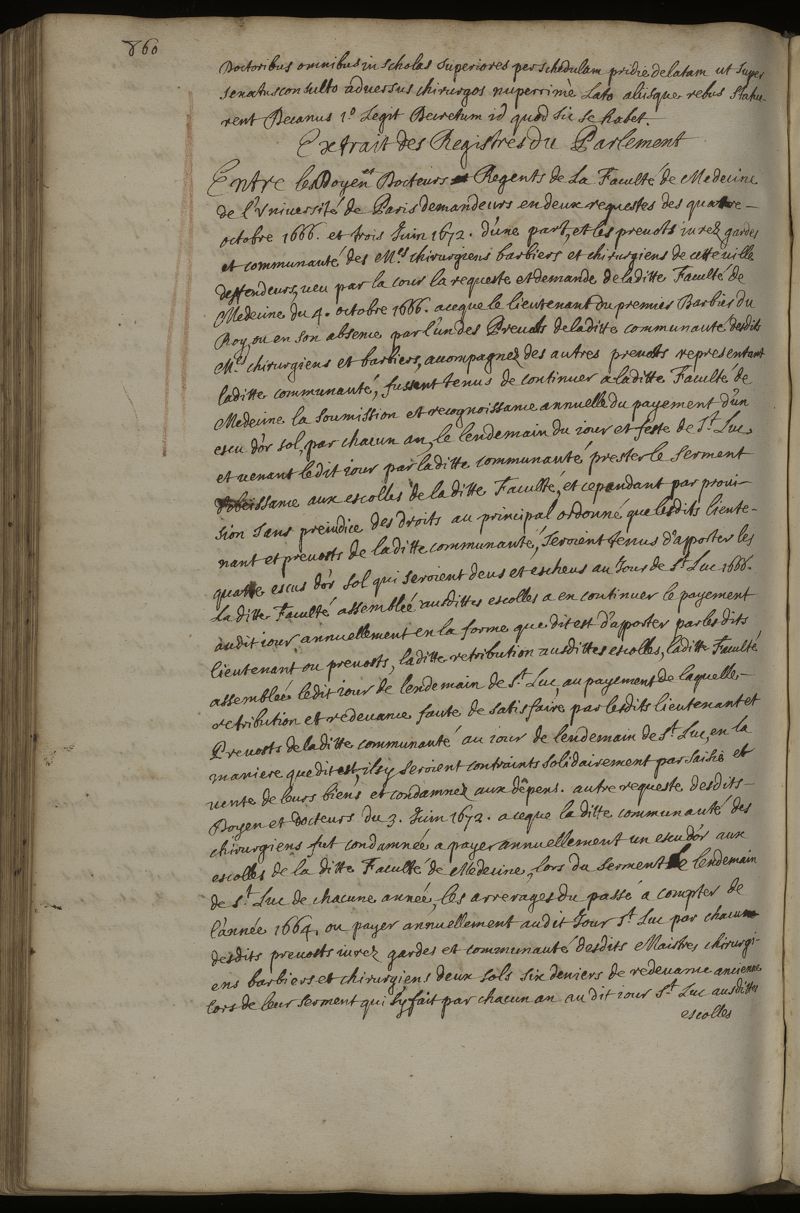 860
Doctoribus omnibus in scholas superiores per schedulam pridie delatam ut super
senatusconsulto adversus chirurgos nuperrimè lato aliisque rebus statue-
rent Decanus 1º Legit Decretum id quod sic se habet.
Extrait des Registres du Parlement
Entre les Doyen et Docteurs Regents de La Faculté de Medecine
de l'Vniversité de Paris demandeurs en deux requestes des quattre
octobre 1666. et trois Juin 1672. d'une part, et les prevots iurez gardes
et communauté des Mes chirurgiens barbiers et chirurgiens de cette ville
deffendeurs, veu par la cour la requeste et demande de laditte Faculté de
Medecine du 4. octobre 1666. aceque le lieutenant du premier Barbier du
Roy, ou en son absence par l'un des Prevosts de laditte communauté desdits
Mes chirurgiens et barbiers, accompagnez des autres prevosts representant
laditte communauté, fussent tenus de continuer a laditte Faculté de
Medecine la soumission et recognoissance annuelle du payement d'un
escu d'or sol, par chacun an, le lendemain du iour et feste de St Luc,
et venant ledit iour par laditte communauté prester le serment
d'obeissance aux escolles de la ditte Faculté, et cependant par provi-
sion sans preiudice des droits au principal ordonné que lesdits lieute-
nant et prevosts de laditte communauté, seroient tenus d'apporter les
quattre escus d'or sol qui seroient deus et escheus au Jour de St Luc 1666.
la ditte Faculté assemblée ausdittes escolles a en continuer le payement
audit iour annuellement en la forme que dit est d'apporter par lesdits
lieutenant ou prevosts, laditte retribution ausdittes escolles, laditte Faculté
assemblée ledit iour de lendemain de St Luc, au payement de laquelle
retribution et redevance faute de satisfaire par lesdits lieutenant et
Prevosts de laditte communauté au iour de lendemain de St Luc, en la
maniere que dit est, ils y seroient contraints solidairement par saisie et
vente de leurs biens et condamnez aux dêpens. autre requeste desdits
Doyen et Docteurs du 3. Juin 1672. aceque la ditte communauté des
chirurgiens fut condamnée a payer annuellement un escu d'or aux
escolles de la ditte Faculté de Medecine, lors du serment le lendemain
de St Luc de chacune année, les arrerages du passé a compter de
l'année 1664, ou payer annuellement audit Jour St Luc par chacun
desdits prevosts iurez gardes et communauté desdits Maistres chirurgi-
ens barbiers et chirurgiens deux sols six deniers de redevance ancienne
lors de leur serment qui s'y fait par chacun an au dit iour St Luc ausdittes
escolles